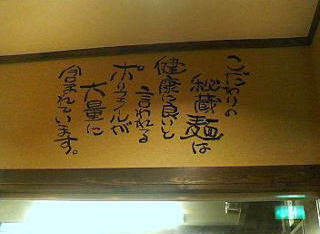 こだわりの
秘蔵麺は
健康に良いと
言われる
ポリフェノールが
大量に
含まれています。